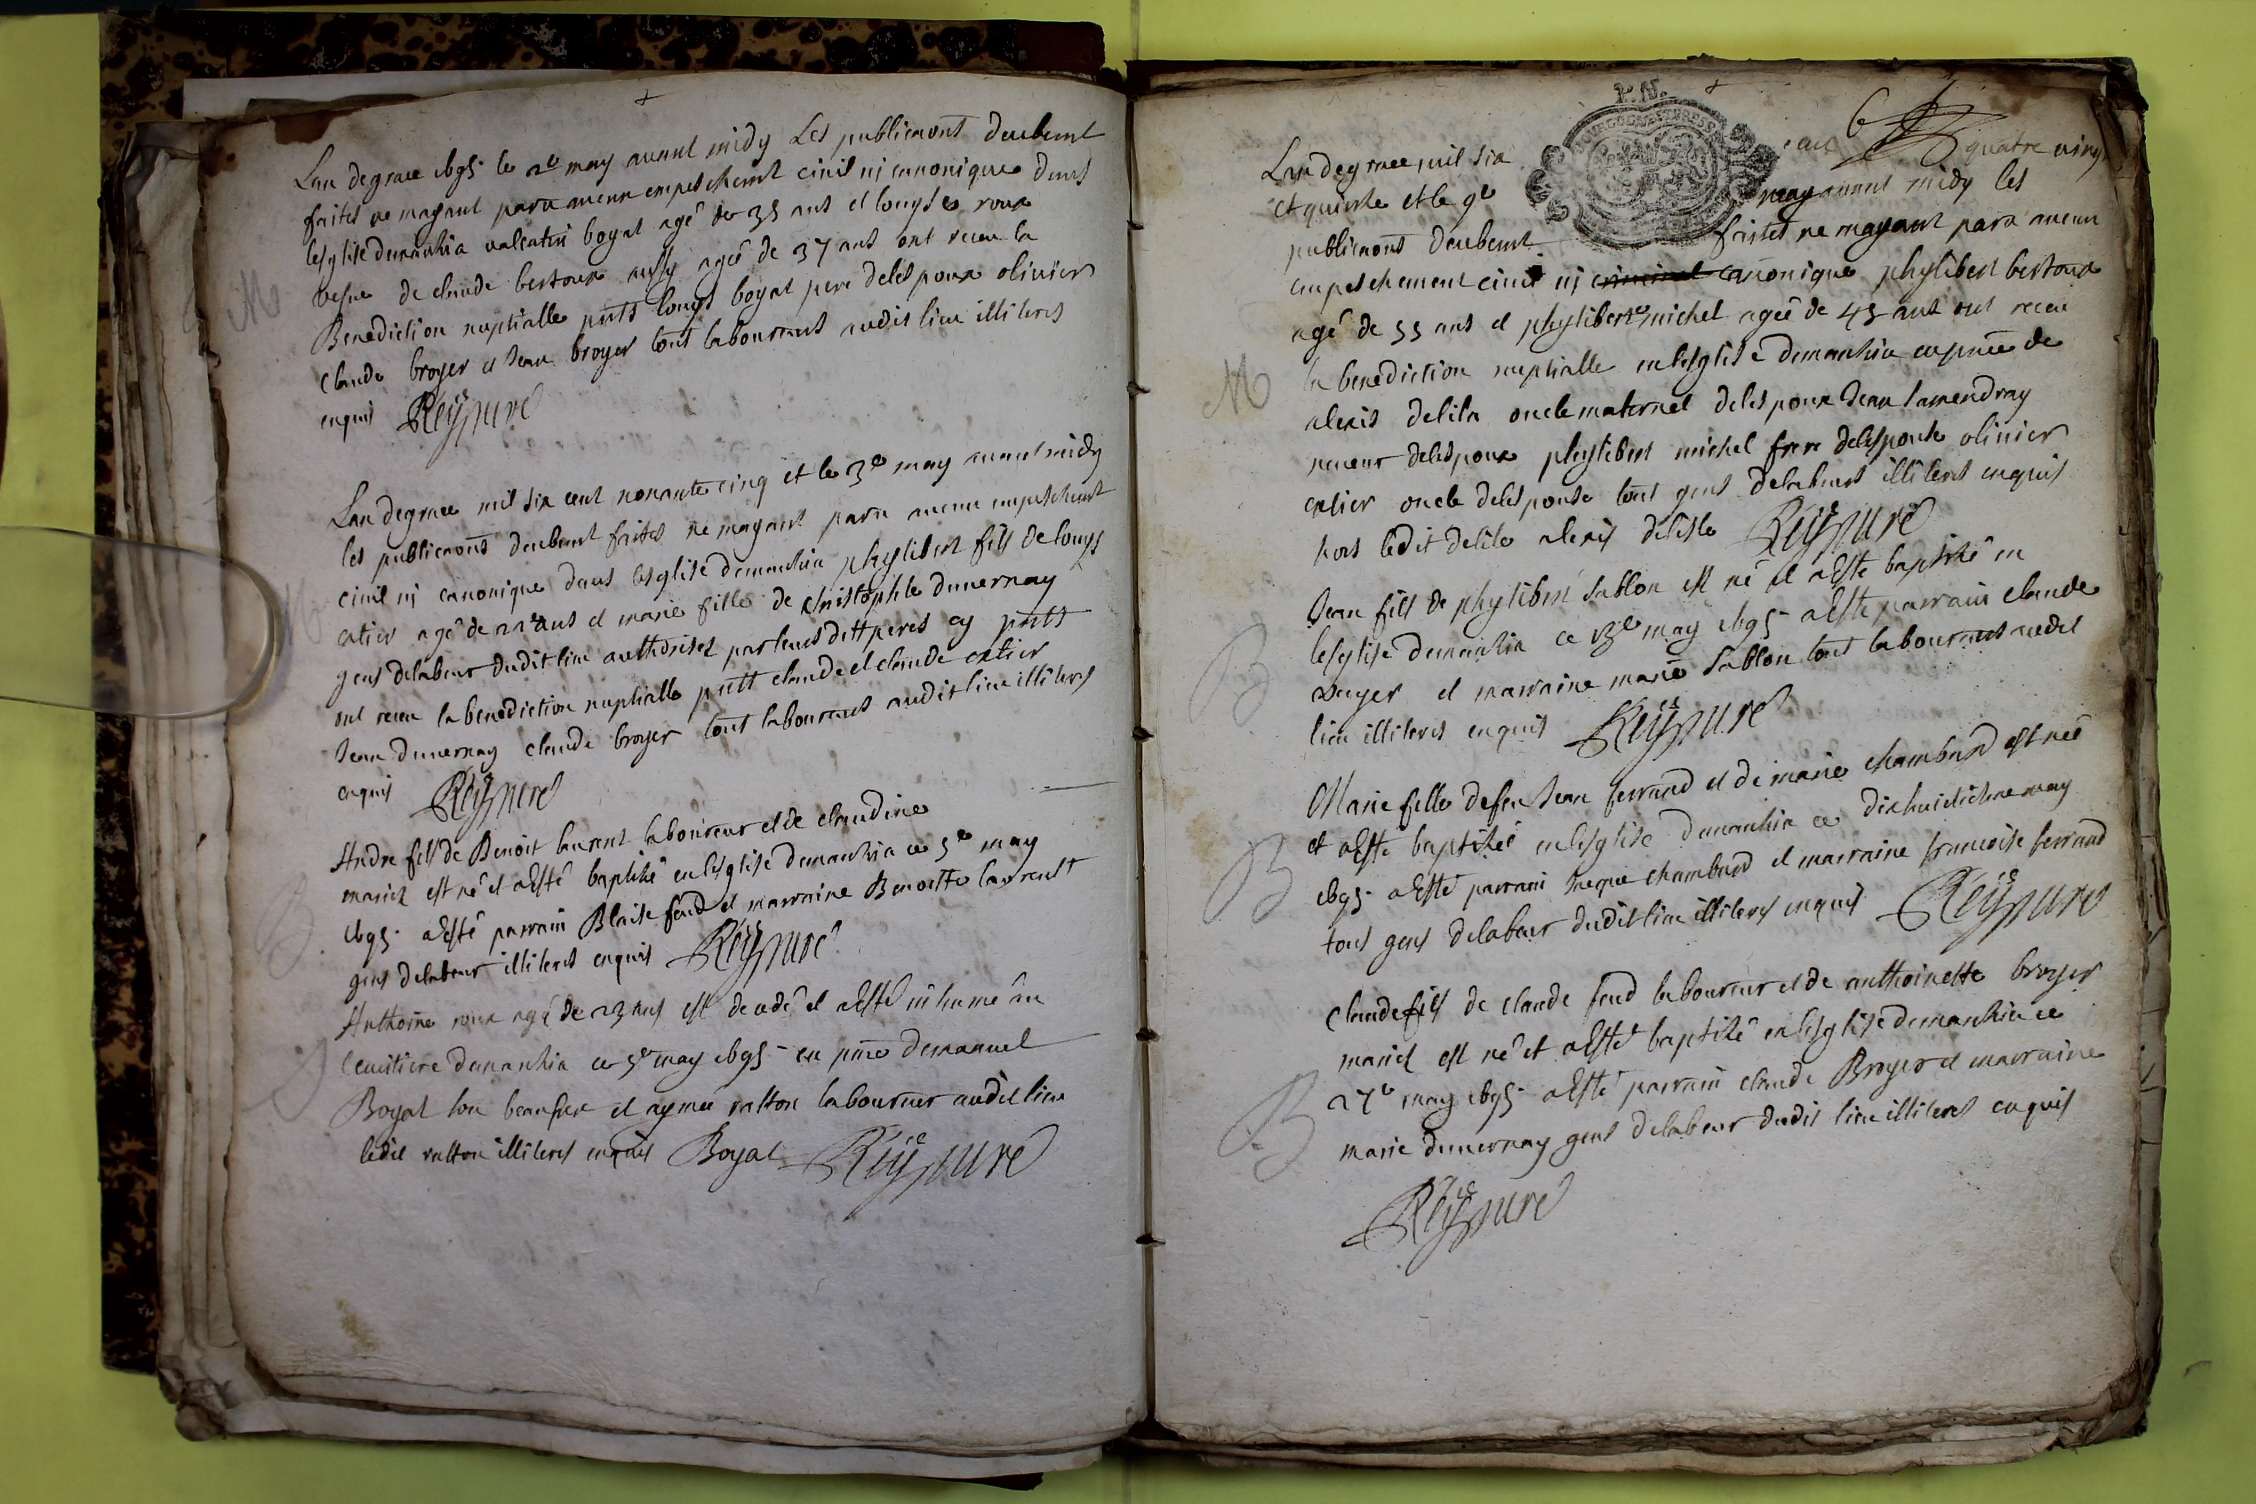 Lan de grace 1695 le 2e may auant midy Les publicaons deubemt
faites ne mayant paru aucun empeschemt ciuil nj canonique dans
lesglise demanhia valentin boyat agé de 35 ans et louyse roux
vefue de claude bertoux aussy agée de 37 ans ont receu la
Benediction nuptialle pnts louys boyat pere delespoux oliuier
Claude broyer et Jean broyer tous laboureurs audit lieu illiterés
enquis Reÿ curé
Lan de grace mil six cent nonante cinq et le 3e may auant midy
les publicaons deubemt faites ne mayant paru aucun empeschemt
ciuil nj canonique dans lesglise demanhia phylibert fils de louys
catier agé de 22 ans et marie fille de christophle duuernay
gens delabeur dudit lieu authorisez par leurs dits peres cy pnts
ont receu la benediction nuptialle pnts claude et claude catier
Jean duuernay claude broyer tous laboureurs audit lieu illiterés
enquis Reÿ curé
Andre fils de Benoit laurent laboureur et de claudine
mariez est né et aesté baptisé en lesglise demanhia ce 5e may
1695 aesté parrain Blaise feud et marraine Benoitte laurent
gens delabeur illiterés enquis Reÿ curé
Anthoine roux agé de 23 ans est decedé et aesté inhumé au
cemitiere demanhia ce 5e may 1695 en pnce demanuel
Boyat son beaufrere et aymée ratton laboureur audit lieu
ledit ratton illiterés enquis Boyat Reÿ curé
P.N.
6
Lan de grace mil six cent quatre vingt
et quinze et le 9e may auant midy les
publicaons deubemt faites ne mayant paru aucun
empeschement ciuil nj criminel canonique phylibert bertoux
agé de 55 ans et phyliberte michel agée de 45 ans ont receu
la benediction nuptialle en lesglise demanhia en pnce de
alexis delila oncle maternel delespoux Jean lamendray
neueur delespoux phylibert michel frere delespouse oliuier
catier oncle delespouse tous gens delabeurs illiterés enquis
hors ledit delile alexis delisle Reÿ curé
Jean fils de phylibert sablon est né et aesté baptisé en
lesglise demanhia ce 13e may 1695 aesté parrain claude
auger et marraine marie sablon tous laboureurs audit
lieu illiterés enquis Reÿ curé
Marie fille defeu Jean ferrand et de marie chambard est née
et aesté baptisée en lesglise demanhia ce dixhuictiesme may
1695 aesté parrain Jacque chambard et marraine francoise ferrand
tous gens delabeur dudit lieu illiterés enquis Reÿ curé
Claude fils de claude feud laboureur et de anthoinette broyer
mariez est né et aesté baptisé en lesglise demanhia ce
27e may 1695 aesté parrain claude Broyer et marraine
marie duuernay gens delabeur dudit lieu illiterés enquis
Reÿ curé